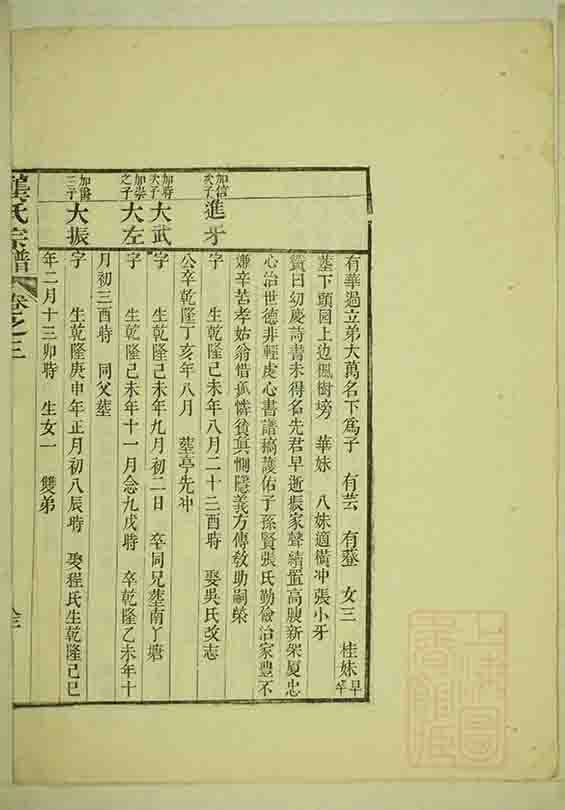 有華過立弟大萬名下爲子 有芸 有蔡 女三 桂妹早卒
塟下頭园上边楓樹塝 華妹 八妹適橫冲張小牙
贊曰幼慶詩書未得名先君早逝振家聲續置高腴新架厦忠
心治世德非輕虔心書譜稿護佑子孫賢張氏勤儉治家豊不
嫌辛苦孝姑翁惜孤憐貧眞惻隱義方傳敎助嗣榮
加信次子 進牙 字 生乾隆己未年八月二十二酉時 娶吳氏改志
公卒乾隆丁亥年八月 塟亭先冲
加時次子 大武 字 生乾隆己未年九月初二日 卒同兄塟南丫塘
加崇之子 大左 字 生乾隆己未年十一月念九戌時 卒乾隆乙未年十
月初三酉時 同父塟
加爵三子 大振 字 生乾隆庚申年正月初八辰時 娶程氏生乾隆己巳
年二月十三卯時 生女一 雙弟
龔氏宗譜 卷之三